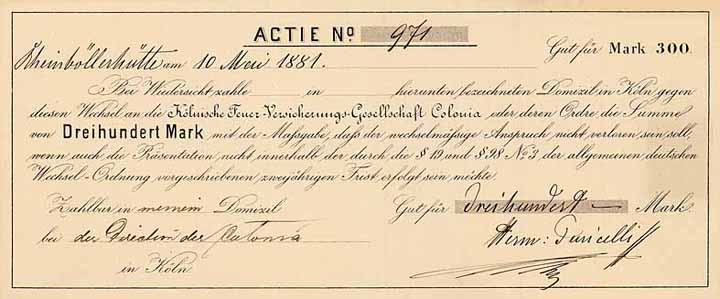 ACTIE No 971
Rheinböllerhütte am 10 Mai 1881. Gut für Mark 300.
Bei Wiedersicht zahle in hierunten bezeichneten Domizil in Köln gegen
diesen Wechsel an die Kölnische Feuer-Versicherungs-Gesellschaft Colonia oder deren Ordre die Summe
von Dreihundert Mark mit der Maßgabe, daß der wechselmäßige Anspruch nicht verloren sein soll,
wenn auch die Präsentation nicht innerhalb der durch die § 19 und § 98 No 3 der allgemeinen deutschen
Wechsel-Ordnung vorgeschriebenen zweijährigen Frist erfolgt sein möchte.
Zahlbar in meinem Domizil Gut für dreihundert Mark
bei der Direction der Colonia Herm: Puricelli
in Köln